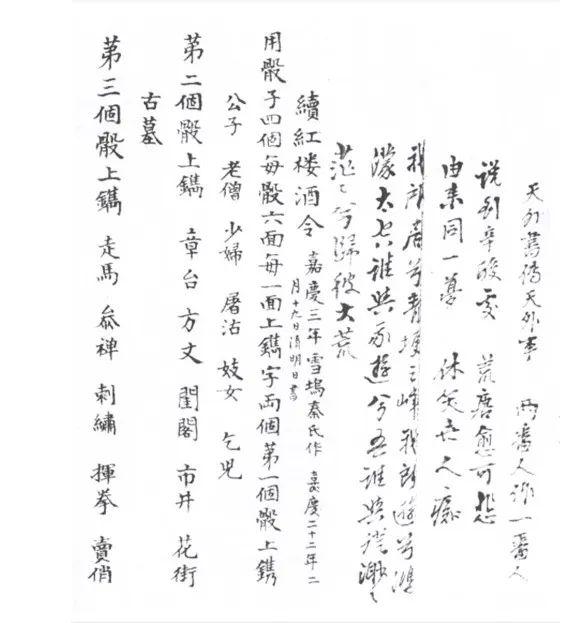 天外書傳天外事 兩番人作一番人
説到辛酸處 荒唐愈可悲
由來同一夢 休笑世人癡
我所居兮青埂之峰我所遊兮鴻
濛太空誰與我遊兮吾誰與從渺々
茫々兮歸彼大荒
續紅楼酒令 嘉慶三年雪塢秦氏作 嘉慶二十二年二
月十九日清明日書
用骰子四個每骰六面每一面上鐫字両個第一個骰上鐫
公子 老僧 少婦 屠沽 妓女 乞児
第二個骰上鐫 章台 方丈 閨閣 市井 花街
古墓
第三個骰上鐫 走馬 叅禅 刺繡 揮拳 賣俏